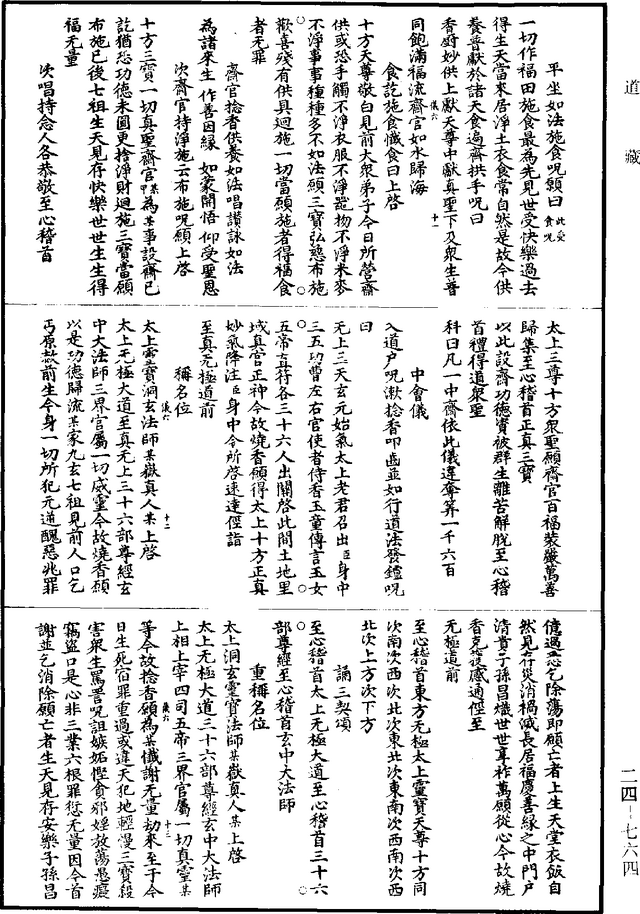 道藏
平坐如法施食呪願曰 此受食呪
一切作福田施食最為先見世受快樂過去
得生天當來居淨土衣食常自然是故今供
養普獻於諸天食遍齋拱手呪曰
香廚妙供上獻天尊中獻真聖下及衆生普
同飽滿福流齋官如水歸海
儀六 十一
食訖施食懺食曰上啓
十方天尊敬白見前大衆弟子今日所營齋
供或恐手觸不淨衣服不淨器物不淨米麥
不淨事事種種多不如法願三寶弘慈布施
歡喜殘有供具迴施一切當願施者得福食
者无罪
齋官捻香供養如法唱讚詠如法
為諸來生 作善因緣 如蒙開悟 仰受聖恩
次齋官持淨施云布施呪願上啓
十方三寶一切真聖齋官甲某為某事設齋已
訖猶恐功德未圓更捨淨財迴施三寶當願
布施已後七祖生天見存快樂世世生生得
福无量
次唱持念人各恭敬至心稽首
太上三尊十方衆聖願齋官百福莊嚴萬善
歸集至心稽首正真三寶
以此設齋功德資被群生離苦解脫至心稽
首禮得道衆聖
科曰凡一中齋依此儀違奪筭一千六百
中會儀
入道戶呪漱捻香叩齒並如行道法發鑪呪
曰
无上三天玄元始氣太上老君召出臣身中
三五功曹左右官使者侍香玉童傳言玉女
五帝直符各三十六人出關啓此間土地里
域真官正神今故燒香願得太上十方正真
妙氣降注臣身中令所啓速達徑詣
至真无極道前
稱名位
儀六 十二
太上靈寶洞玄法師某嶽真人某上啓
太上无極大道至真无上三十六部尊經玄
中大法師三界官屬一切威靈今故燒香願
以是功德歸流某家九玄七祖見前人口乞
丐原赦前生今身一切所犯元逆醜惡兆罪
億過忝乞除蕩即願亡者上生天堂衣飯自
然見存災消禍滅長居福慶善緣之中門戶
清貴子孫昌熾世世享祚萬願從心今故燒
香克蒙感通徑至
无極道前
至心稽首東方无極太上靈寶天尊十方同
次南次西次北次東北次東南次西南次西
北次上方次下方
誦三契頌
至心稽首太上无極大道至心稽首三十六
部尊經至心稽首玄中大法師
重稱名位
太上洞玄靈寶法師某嶽真人某上啓
太上无極大道三十六部尊經玄中大法師
上相上宰四司五帝三界官屬一切真靈某
等今故捻香願為某懺謝无量劫來至于今
儀六 十三
日生死宿罪重過或違天犯地輕慢三寶殺
害衆生罵詈呪詛嫉妬慳貪邪婬放蕩愚癡
竊盜口是心非三業六根罪愆无量因今首
謝並乞消除願亡者生天見存安樂子孫昌
二四–七六四